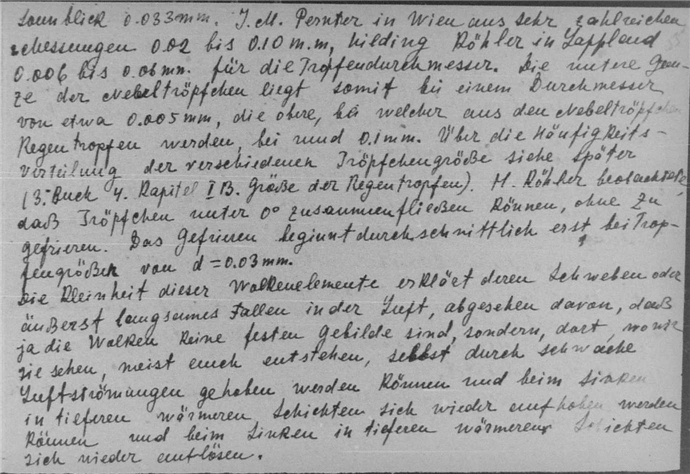 Sonnblick 0.033mm. J.M. Pernter in Wien aus sehr zahlreichen
Messungen 0.02 bis 0.10 m.m, Hilding Köhler in Lappland
0.006 bis 0.06 mm. für die Tropfendurchmesser. Die untere Gren-
ze der Nebeltröpfchen liegt somit bei einem Durchmesser
von etwa 0.005mm, die obere, bei welcher aus den Nebeltröpfchen
Regentropfen werden, bei rund 0.1mm. Über die Häufigkeits-
verteilung der verschiedenen Tröpfchengröße siehe später
(3. Buch 4. Kapitel I B. Größe der Regentropfen). H. Köhler beobachtete,
daß Tröpfchen unter 0° zusammenfließen können, ohne zu
gefrieren. Das Gefrieren beginnt durchschnittlich erst bei Trop-
fengrößen von d = 0.03mm.
Die Kleinheit dieser Wolkenelemente erklärt deren Schweben oder
äußerst langsames Fallen in der Luft, abgesehen davon, daß
ja die Wolken keine festen Gebilde sind, sondern, dort, wo wir
sie sehen, meist auch entstehen, selbst durch schwache
Luftströmungen gehoben werden können und beim sinken
in tieferen wärmeren Schichten sich wieder aufhoben werden
können und beim Sinken in tieferen wärmeren Schichten
sich wieder auflösen.